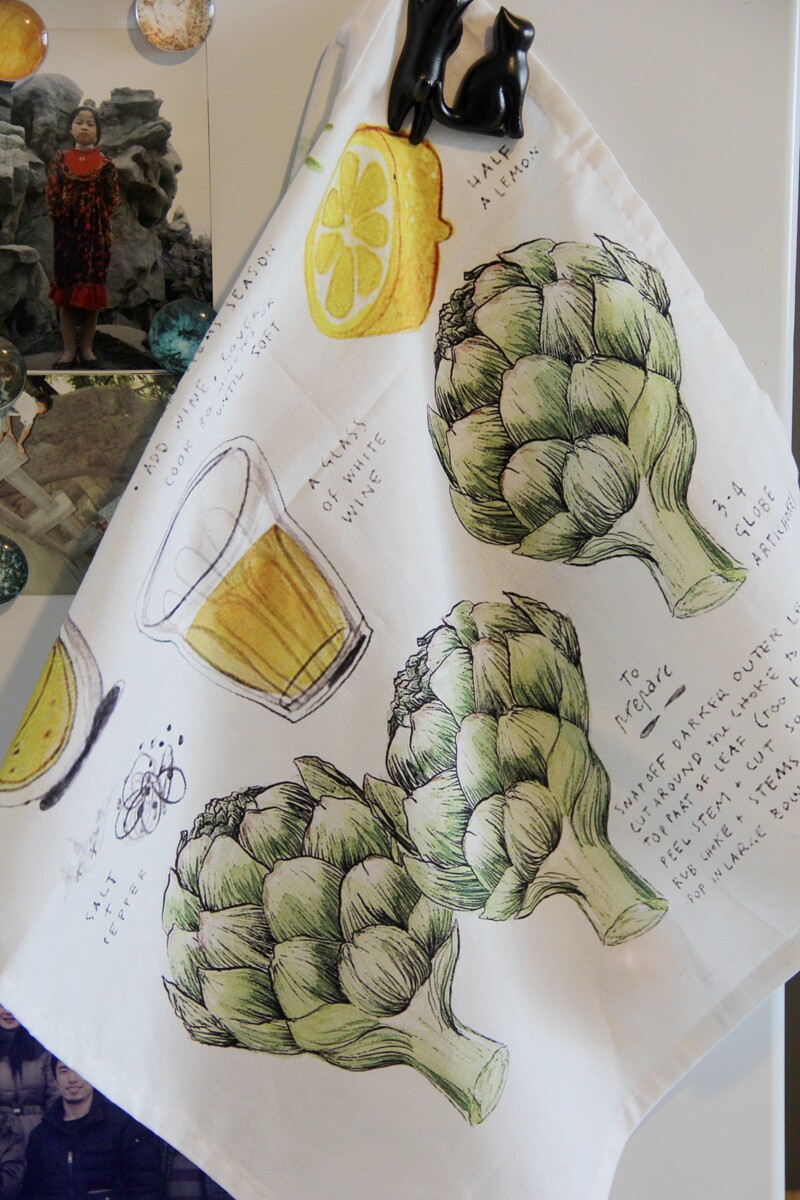 HALF
A LEMON
SEASON
• ADD WINE, COVER
COOK 30 MINUTES OR
UNTIL SOFT
A GLASS
OF WHITE
WINE
3-4
GLOBE
ARTICHOKES
To
prepare
SNAP OFF DARKER OUTER
CUT AROUND the CHOKE
TOP PART OF LEAF (TOO
PEEL STEM + CUT
RUB CHOKE + STEMS
POP IN LARGE BOWL
SALT
+
PEPPER